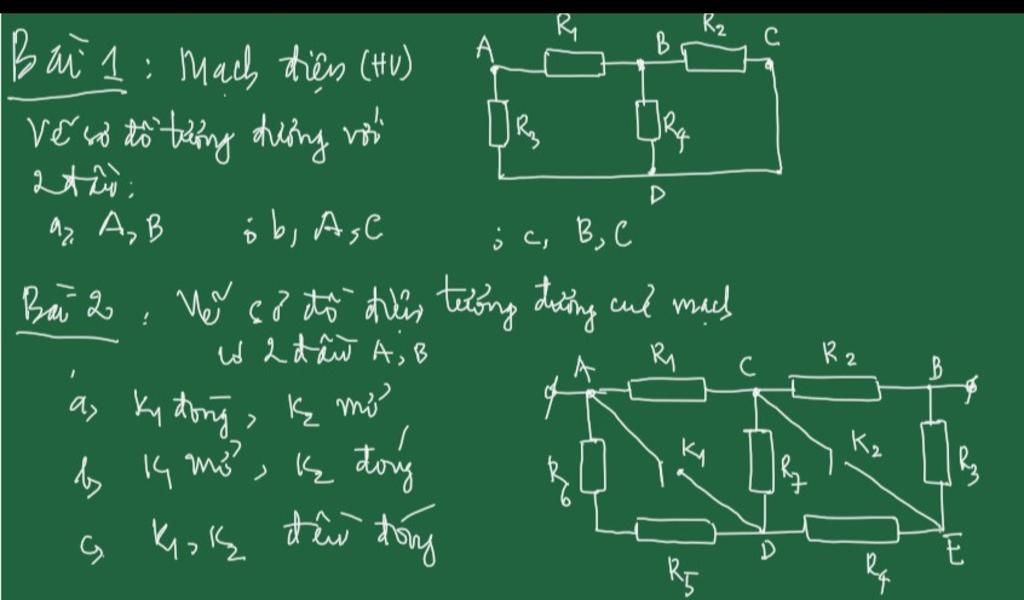 Bài 1 : Mạch điện (HV)
Vẽ sơ đồ tương đương với
2 đầu:
a, A,B ; b, A,C ; c, B,C
Bài 2 : Vẽ sơ đồ điện tương đương của mạch
có 2 đầu A,B
a, K1 đóng, K2 mở
b, K1 mở, K2 đóng
c, K1,K2 đều đóng
A R1 B R2 C
R3 R4
D
A R1 C R2 B
R6 K1 R7 K2 R3
D E
R5 R4